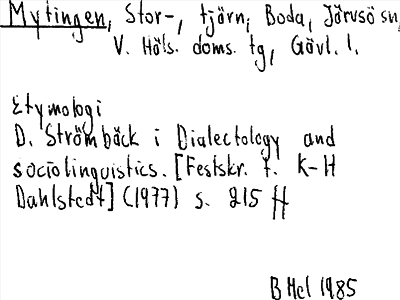 Mytingen, Stor-, tjärn, Boda, Järvsö sn,
V. Häls. doms. tg, Gävl. l.
Etymologi
D. Strömbäck i Dialectology and
sociolinguistics. [Festskr. t. K-H
Dahlstedt] (1977) s. 215 ff
B Hel 1985